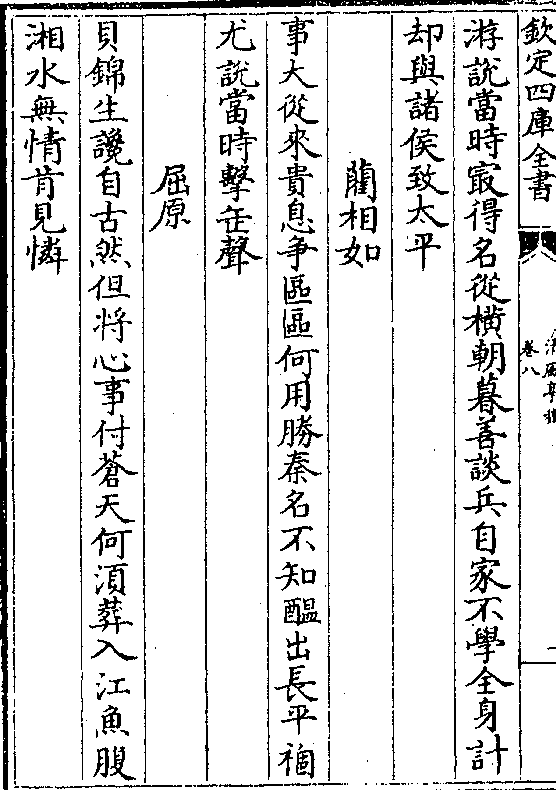 欽定四庫全書
卷八
游說當時㝡得名從橫朝暮善談兵自家不學全身計
却與諸侯致太平
藺相如
事大從來貴息争區區何用勝秦名不知醖出長平禍
尤說當時擊缶聲
屈原
貝錦生讒自古然但將心事付蒼天何須葬入江魚腹
湘水無情肯見憐